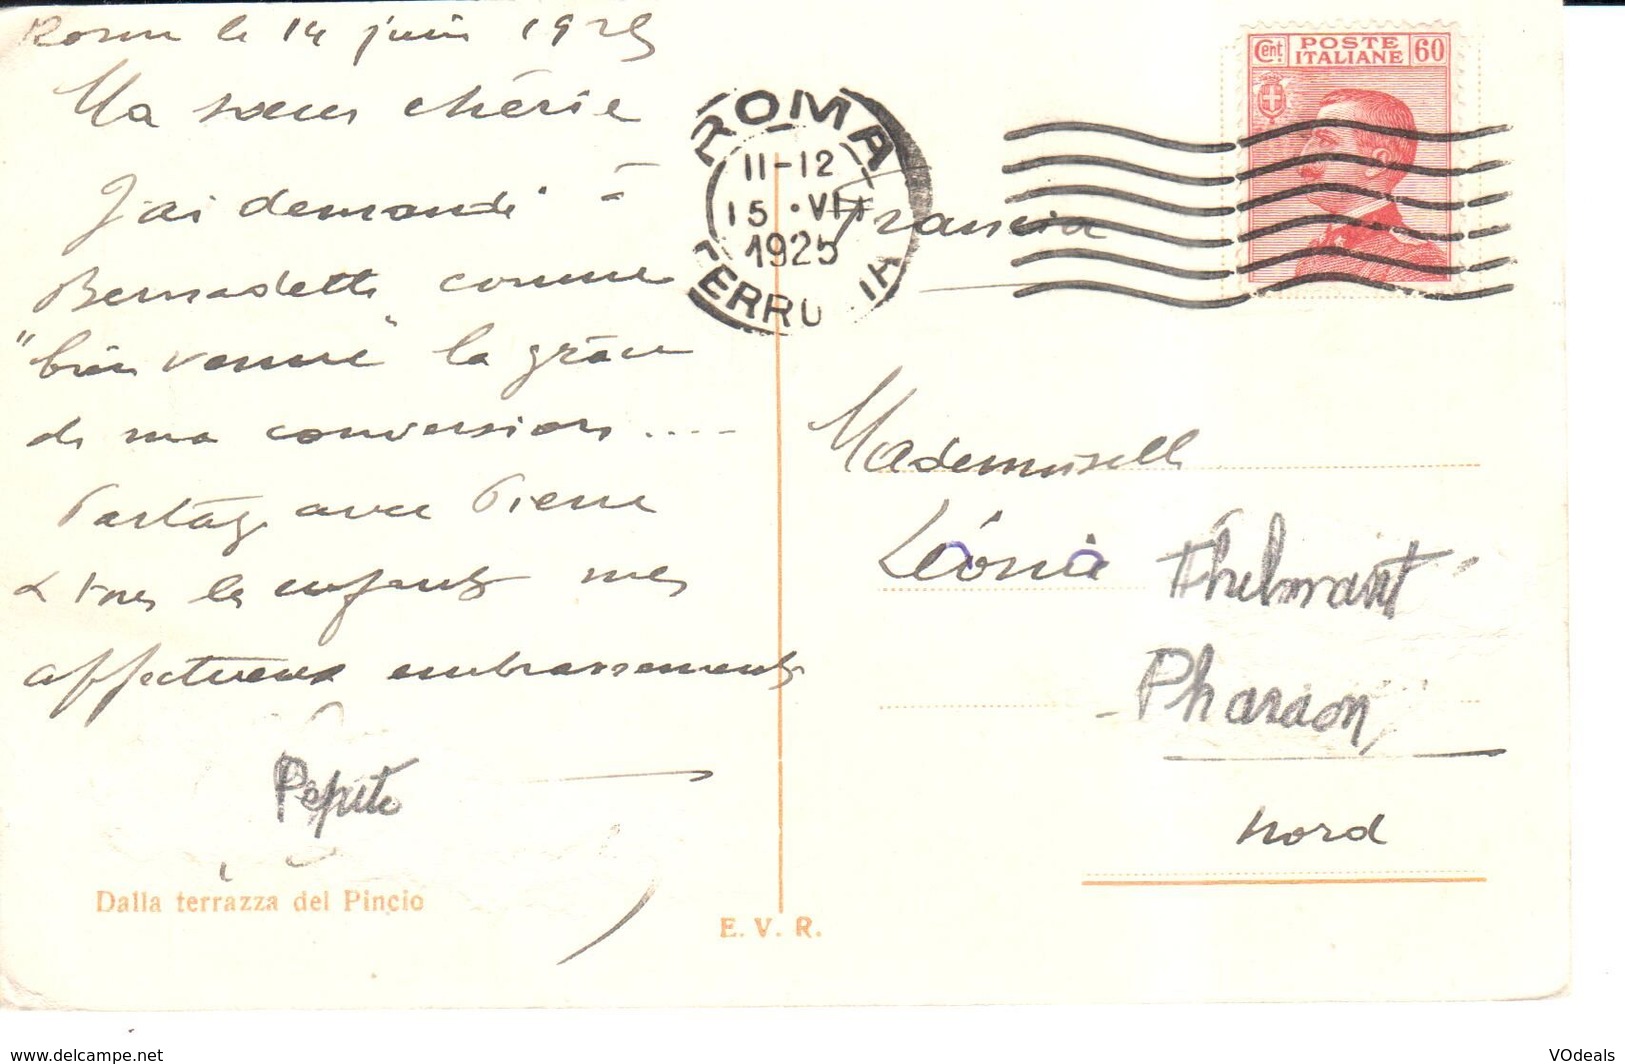 Rome le 14 juin 1925
Ma soeur chérie
J'ai demandé à
Bernadette comme
"bienvenue" la grâce
de ma conversion ....
Partage avec Pierre
& tous les enfants mes
affectueux embrassements
Pepite
Dalla terrazza del Pincio
E. V. R.
ROMA
11-12
15 · VI
1925
FERRO IA
Cent POSTE ITALIANE 60
Francia
Mademoiselle
Léonia Thelmant
Pharaon
Nord
www.delcampe.net
VOdeals